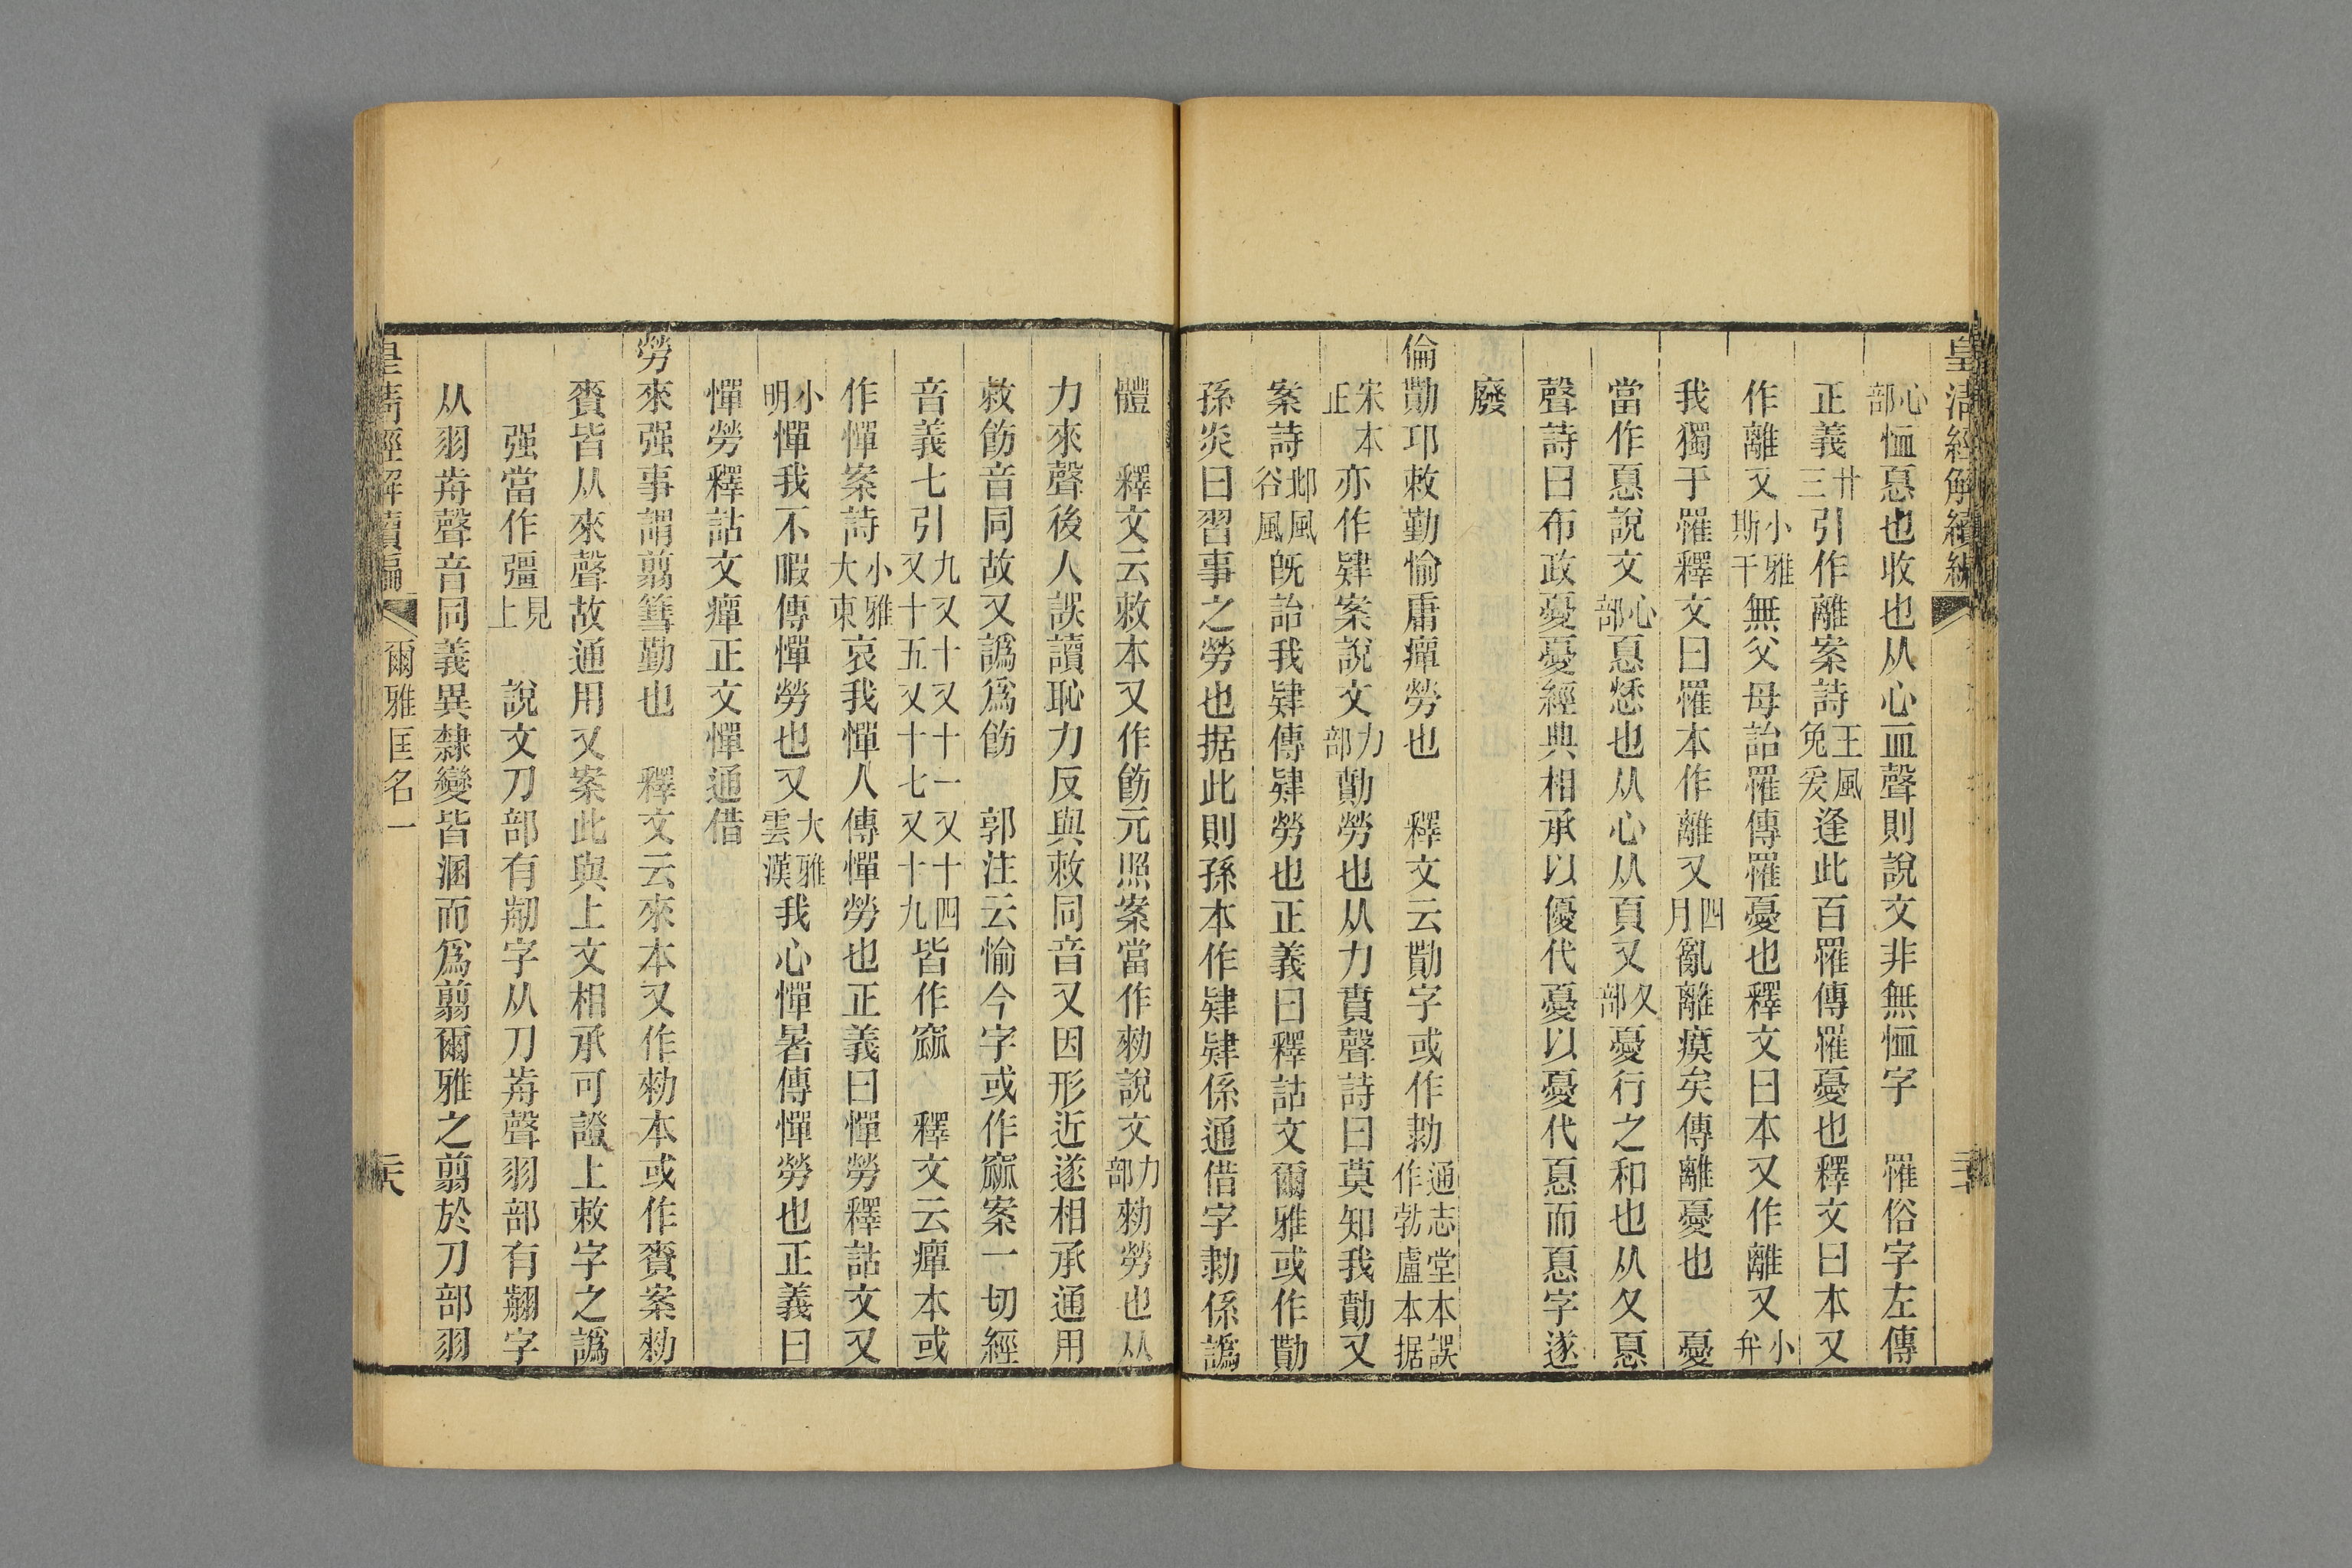 皇清經解續編
心部恤㥑也收也从心血聲則說文非無恤字 罹俗字左傳
正義廿三引作離案詩王風免爰逢此百罹傳罹憂也釋文曰本又
作離又小雅斯干無父母詒罹傳罹憂也釋文曰本又作離又小弁
我獨于罹釋文曰罹本作離又四月亂離瘼矣傳離憂也 憂
當作㥑說文心部㥑愁也从心从頁又夊部憂行之和也从夊㥑
聲詩曰布政憂憂經典相承以優代憂以憂代㥑而㥑字遂
廢
倫勩邛敕勤愉庸癉勞也 釋文云勩字或作勚通志堂本誤作勃盧本据
宋本正亦作肄案說文力部勩勞也从力貰聲詩曰莫知我勩又
案詩邶風谷風旣詒我肄傳肄勞也正義曰釋詁文爾雅或作勩
孫炎曰習事之勞也据此則孫本作肄肄係通借字勚係譌
體 釋文云敕本又作飭元照案當作勑說文力部勑勞也从
力來聲後人誤讀恥力反與敕同音又因形近遂相承通用
敕飭音同故又譌爲飭 郭注云愉今字或作窳案一切經
音義七引九又十又十一又十四又十五又十七又十九皆作窳 釋文云癉本或
作憚案詩小雅大東哀我憚人傳憚勞也正義曰憚勞釋詁文又
小明憚我不暇傳憚勞也又大雅雲漢我心憚暑傳憚勞也正義曰
憚勞釋詁文癉正文憚通借
勞來强事謂翦篲勤也 釋文云來本又作勑本或作賚案勑
賚皆从來聲故通用又案此與上文相承可證上敕字之譌
强當作彊見上 說文刀部有㓨字从刀歬聲羽部有翦字
从羽歬聲音同義異隸變皆溷而爲翦爾雅之翦於刀部羽
皇淸經解續編 爾雅匡名一